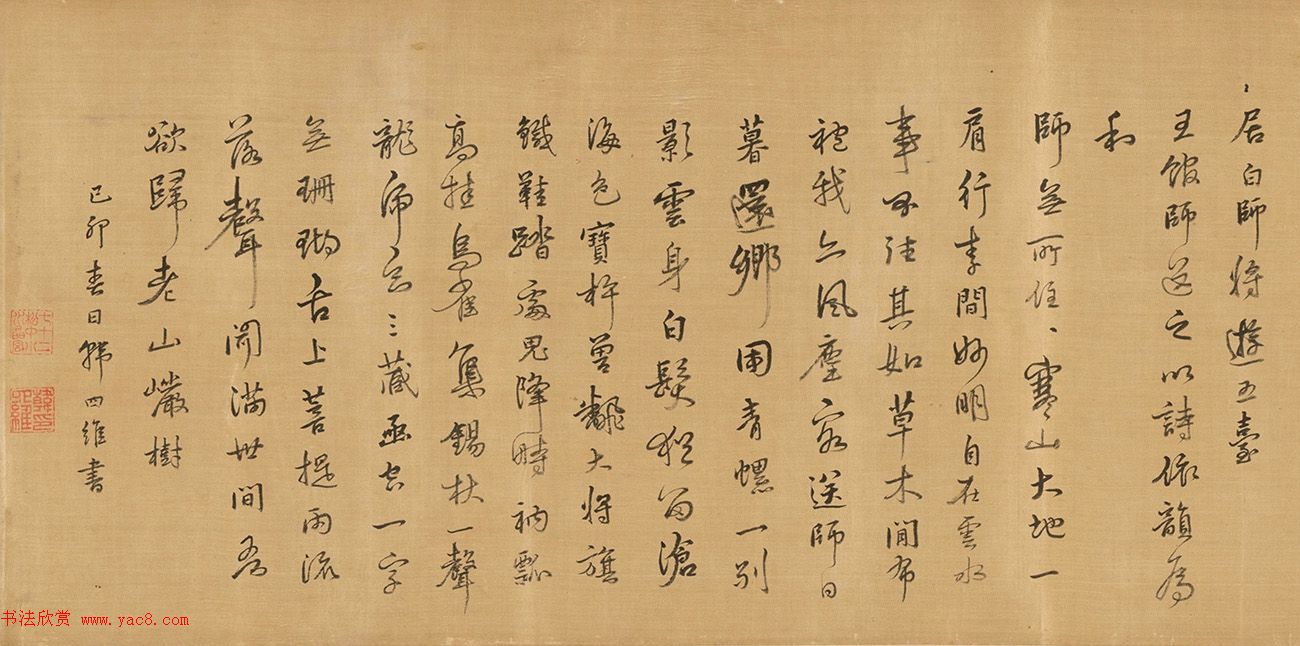 居白師將遊五臺
王館師送之以詩依韻爲
和
師無所住、寒山大地一
肩行李間妙明自在雲水
事不往其如草木間布
袍我亦風塵客送師日
暮還鄉困青螺一別
影雲身白髮猶留滄
海色寶杵曾齾大將旗
鐵鞋踏處鬼降時衲瓢
高挂烏雀集錫杖一聲
龍虎三藏函空一字
無珊瑚舌上菩提雨流
落聲聞滿世間爲
欲歸老山巖樹
己卯春日韓四維書
韓四維印
书法欣赏 www.yac8.com